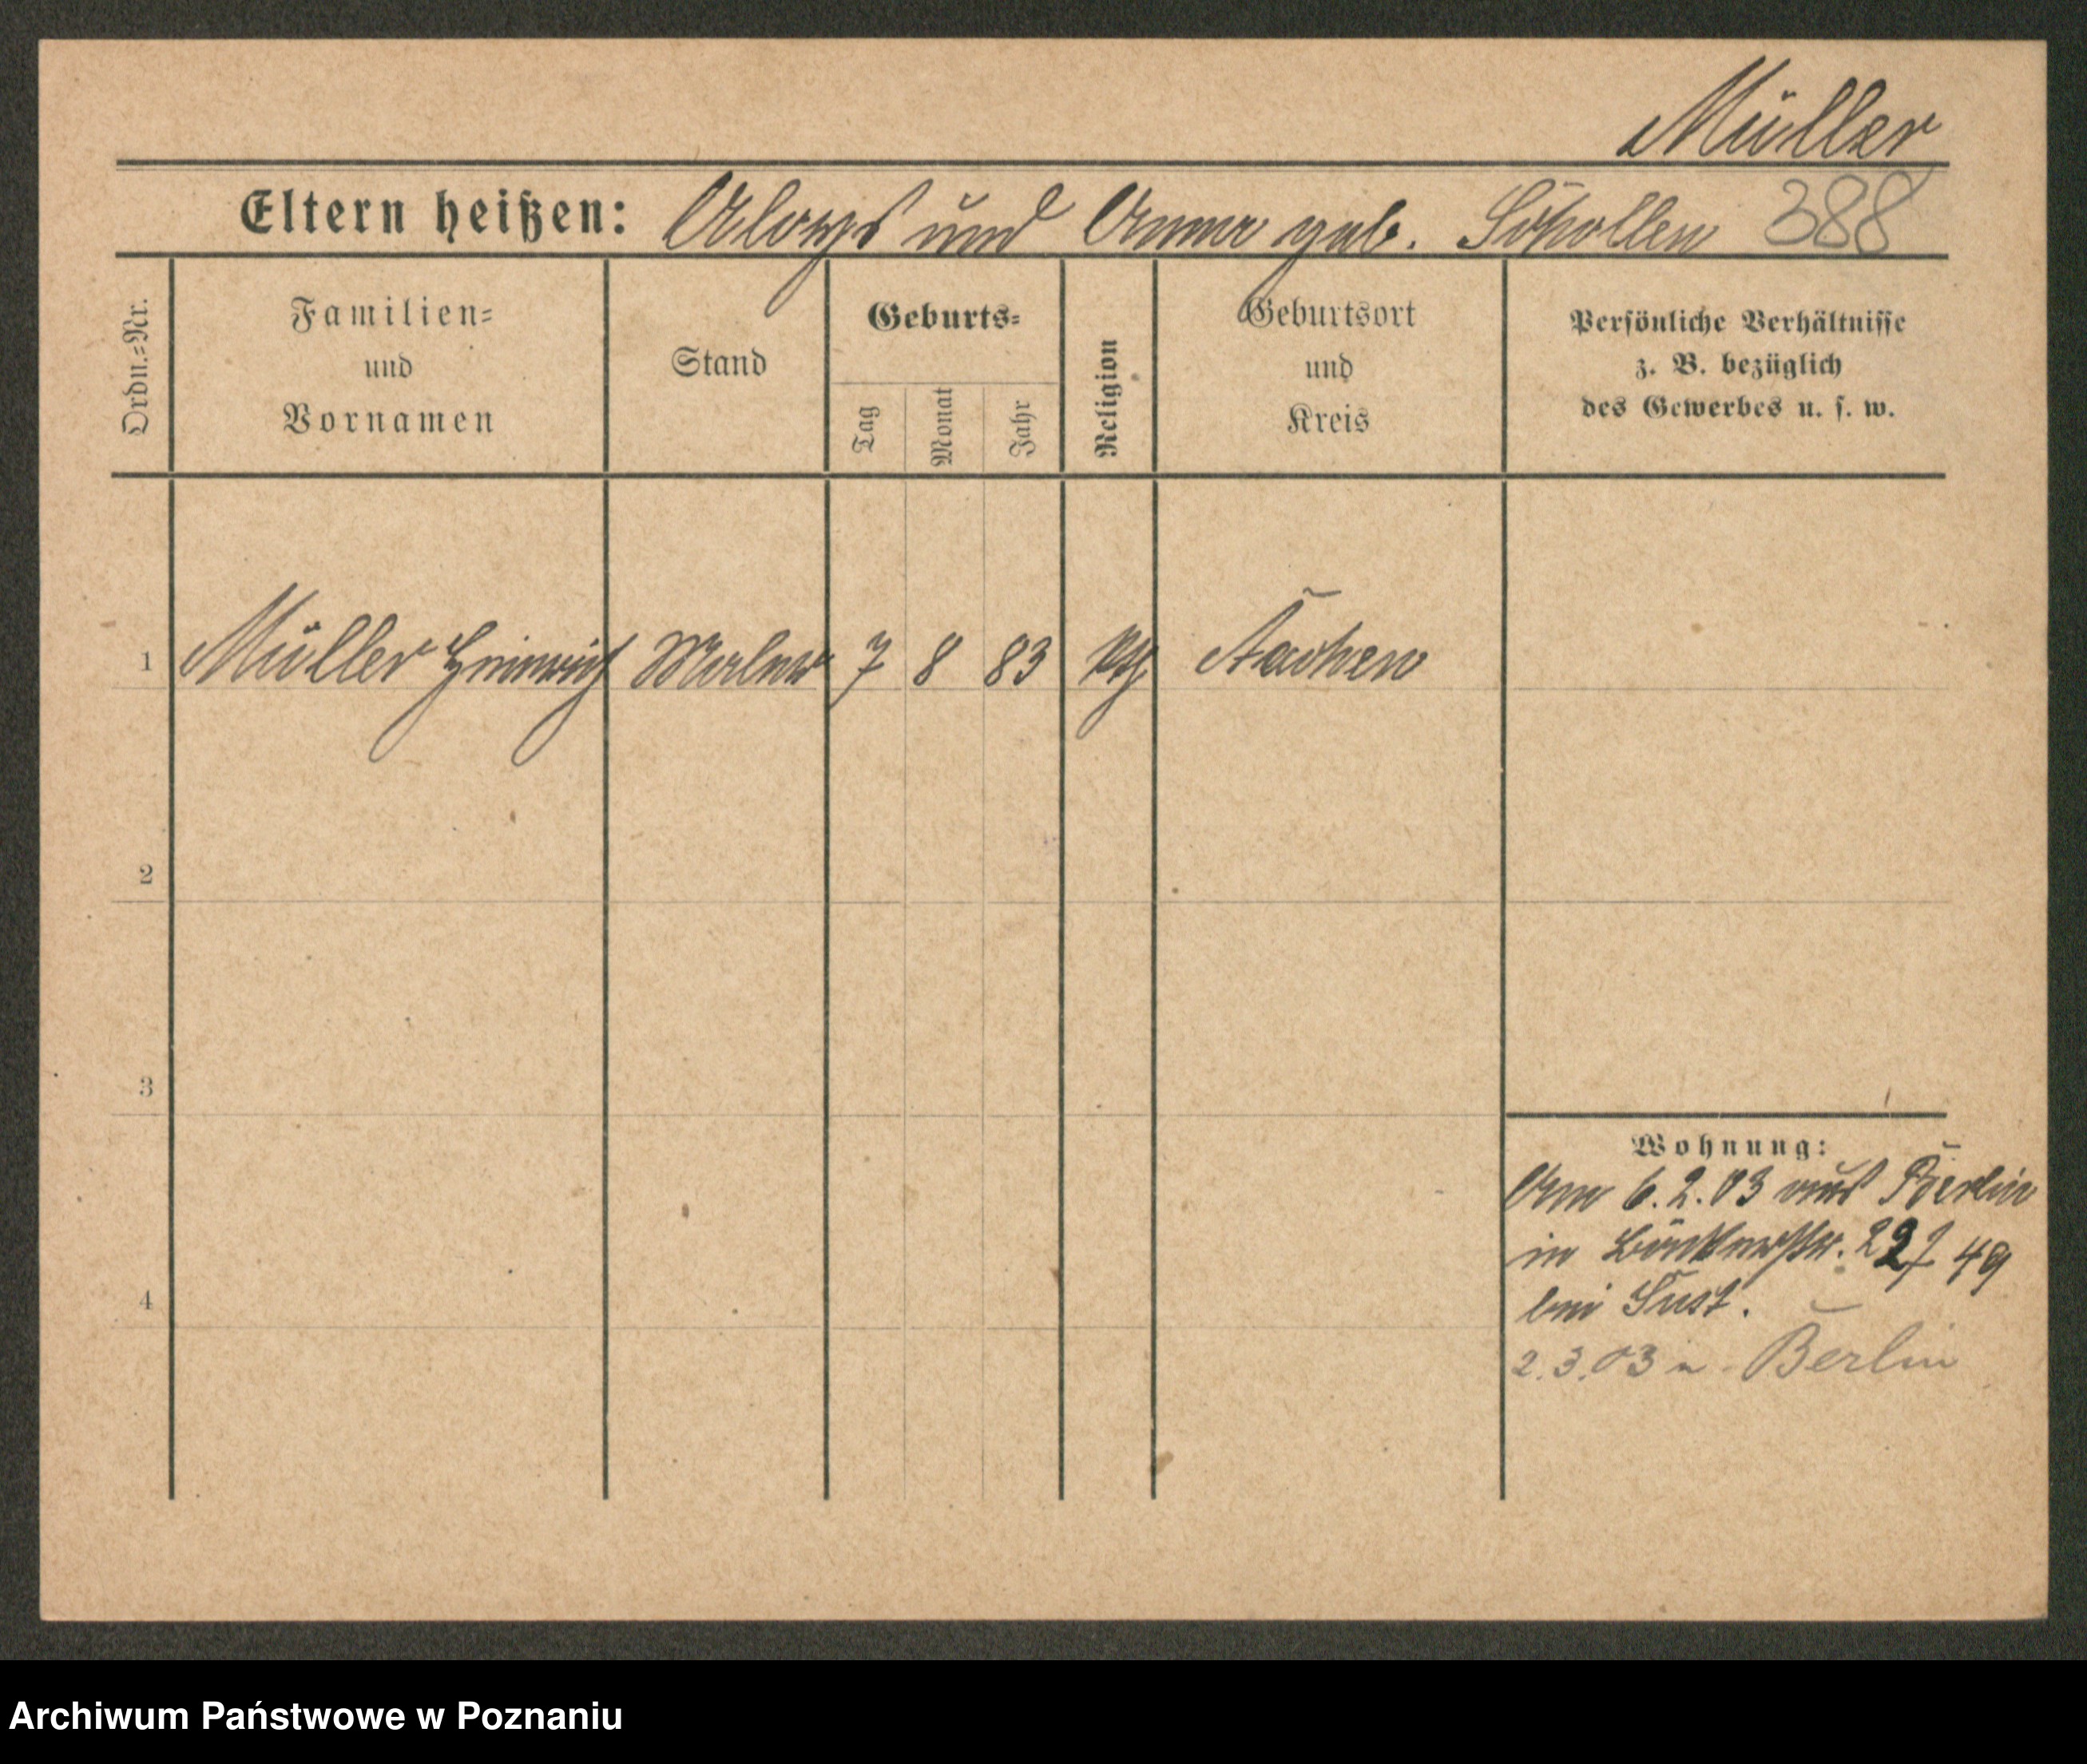 Müller
Eltern heißen: Aloys und Anna geb. Schollen 388
Ordn.=Nr.
Familien=
und
Vornamen
Stand
Geburts=
Tag
Monat
Jahr
Religion
Geburtsort
und
Kreis
Persönliche Verhältnisse
z. B. bezüglich
des Gewerbes u. s. w.
1 Müller Heinrich Maler 7 8 83 kth Aachen
2
3
4
Wohnung:
Am 6.2.03 aus Berlin
in 49
bei Just.
2.3.03 n Berlin
Archiwum Państwowe w Poznaniu